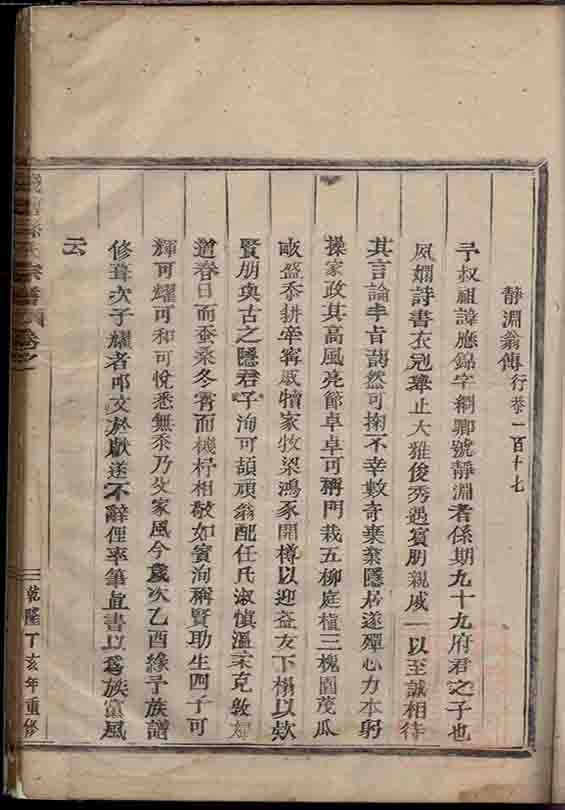 靜淵翁傳 行恭一百十七
予叔祖諱應錦字網卿號靜淵者係期九十九府君之子也
夙嫻詩書衣冠舉止大雅俊秀遇賓朋親戚一以至誠相待
其言論丰旨藹然可掬不幸數奇棄業隱居遂殫心力本躬
操家政其高風亮節卓卓可稱門栽五柳庭植三槐園茂瓜
畝盛黍耕牽甯戚犢家牧梁鴻豕開樽以迎益友下榻以欵
賢朋與古之隱君子洵可頡頏翁配任氏淑慎溫柔克敦婦
道春日而蚕桑冬宵而機杼相敬如賓洵稱賢助生四子可
輝可耀可和可悅悉無忝乃父家風今歲次乙酉緣予族譜
修葺次子耀者邛文於獻遂不辭俚率筆直書以爲族黨風
云
宗譜
卷之
乾隆丁亥年重修